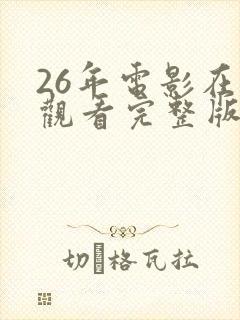 26年電影在
觀看完整版
切·格瓦拉